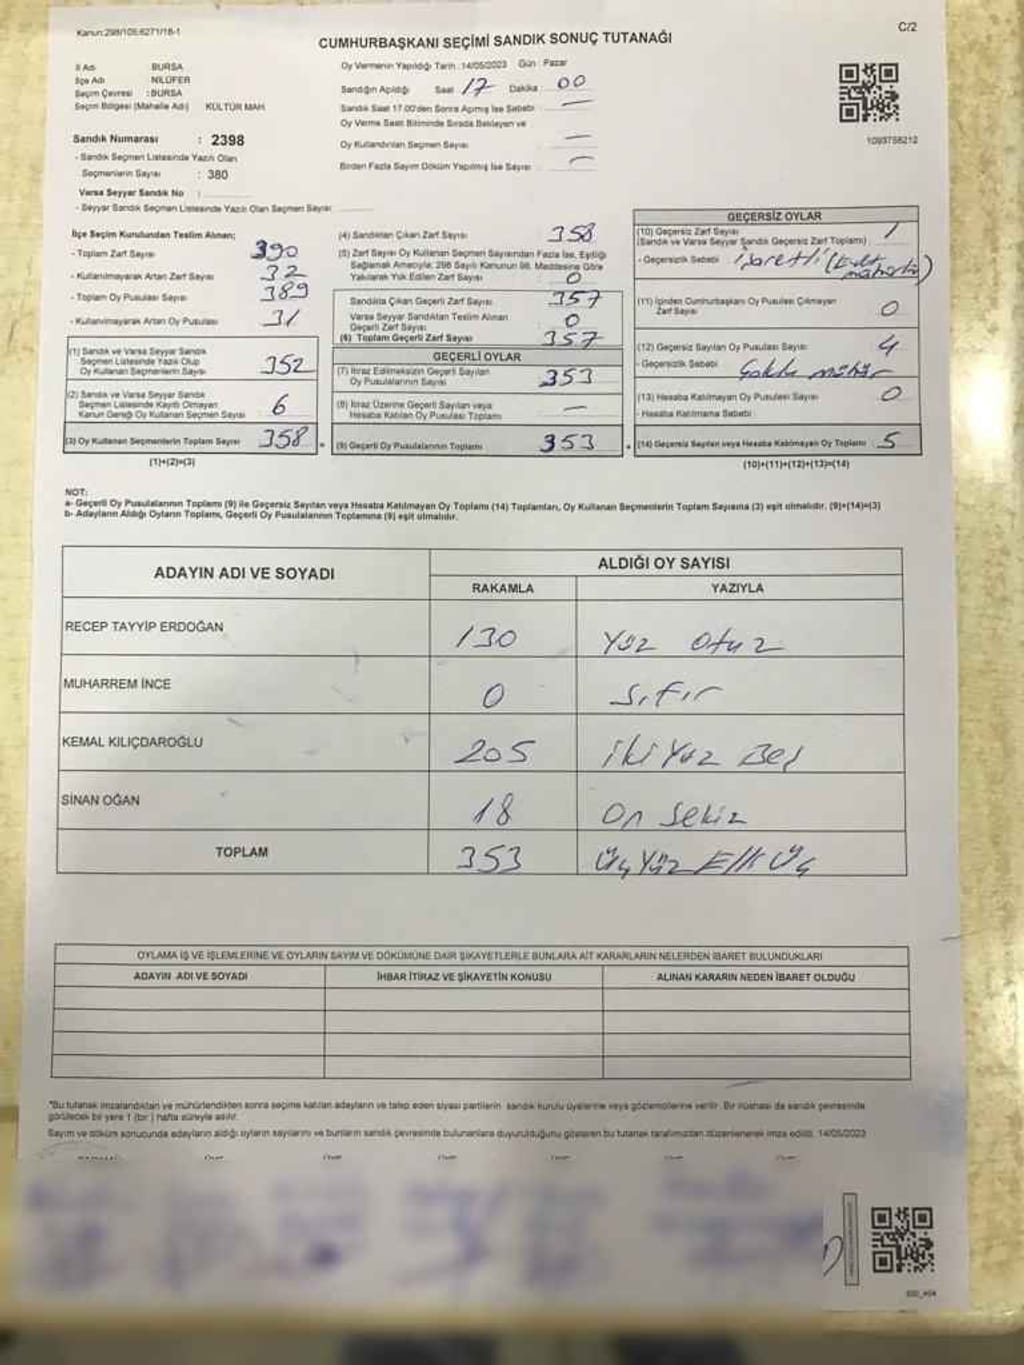 Kanun:298/105.6271/18-1
C/2
CUMHURBAŞKANI SEÇİMİ SANDIK SONUÇ TUTANAĞI
İl Adı BURSA
İlçe Adı NİLÜFER
Seçim Çevresi : BURSA
Seçim Bölgesi (Mahalle Adı) KÜLTÜR MAH.
Oy Vermenin Yapıldığı Tarih :14/05/2023 Gün : Pazar
Sandığın Açıldığı Saat 17 Dakika 00
Sandık Saat 17.00'den Sonra Açılmış İse Sebebi —
Oy Verme Saati Bitiminde Sırada Bekleyen ve
Oy Kullandırılan Seçmen Sayısı —
Birden Fazla Sayım Döküm Yapılmış İse Sayısı —
1093756212
Sandık Numarası : 2398
- Sandık Seçmen Listesinde Yazılı Olan
Seçmenlerin Sayısı : 380
Varsa Seyyar Sandık No :
- Seyyar Sandık Seçmen Listesinde Yazılı Olan Seçmen Sayısı
İlçe Seçim Kurulundan Teslim Alınan;
- Toplam Zarf Sayısı 390
- Kullanılmayarak Artan Zarf Sayısı 32
- Toplam Oy Pusulası Sayısı 389
- Kullanılmayarak Artan Oy Pusulası 31
(1) Sandık ve Varsa Seyyar Sandık
Seçmen Listesinde Yazılı Olup
Oy Kullanan Seçmenlerin Sayısı 352
(2) Sandık ve Varsa Seyyar Sandık
Seçmen Listesinde Kayıtlı Olmayan
Kanun Gereği Oy Kullanan Seçmen Sayısı 6
(3) Oy Kullanan Seçmenlerin Toplam Sayısı 358 =
(1)+(2)=(3)
(4) Sandıktan Çıkan Zarf Sayısı 358
(5) Zarf Sayısı Oy Kullanan Seçmen Sayısından Fazla İse, Eşitliği
Sağlamak Amacıyla, 298 Sayılı Kanunun 98. Maddesine Göre
Yakılarak Yok Edilen Zarf Sayısı 0
Sandıkta Çıkan Geçerli Zarf Sayısı 357
Varsa Seyyar Sandıktan Teslim Alınan
Geçerli Zarf Sayısı 0
(6) Toplam Geçerli Zarf Sayısı 357
GEÇERLİ OYLAR
(7) İtiraz Edilmeksizin Geçerli Sayılan
Oy Pusulalarının Sayısı 353
(8) İtiraz Üzerine Geçerli Sayılan veya
Hesaba Katılan Oy Pusulaları Toplamı —
(9) Geçerli Oy Pusulalarının Toplamı 353 +
GEÇERSİZ OYLAR
(10) Geçersiz Zarf Sayısı 1
(Sandık ve Varsa Seyyar Sandık Geçersiz Zarf Toplamı)
- Geçersizlik Sebebi İşaretli
(11) İçinden Cumhurbaşkanı Oy Pusulası Çıkmayan
Zarf Sayısı 0
(12) Geçersiz Sayılan Oy Pusulası Sayısı 4
- Geçersizlik Sebebi Çoklu mühür
(13) Hesaba Katılmayan Oy Pusulası Sayısı 0
- Hesaba Katılmama Sebebi
(14) Geçersiz Sayılan veya Hesaba Katılmayan Oy Toplamı 5
(10)+(11)+(12)+(13)=(14)
NOT:
a- Geçerli Oy Pusulalarının Toplamı (9) ile Geçersiz Sayılan veya Hesaba Katılmayan Oy Toplamı (14) Toplamları, Oy Kullanan Seçmenlerin Toplam Sayısına (3) eşit olmalıdır. (9)+(14)=(3)
b- Adayların Aldığı Oyların Toplamı, Geçerli Oy Pusulalarının Toplamına (9) eşit olmalıdır.
ADAYIN ADI VE SOYADI
ALDIĞI OY SAYISI
RAKAMLA YAZIYLA
RECEP TAYYİP ERDOĞAN 130 Yüz Otuz
MUHARREM İNCE 0 Sıfır
KEMAL KILIÇDAROĞLU 205 İki Yüz Beş
SİNAN OĞAN 18 On Sekiz
TOPLAM 353 Üç Yüz Elli Üç
OYLAMA İŞ VE İŞLEMLERİNE VE OYLARIN SAYIM VE DÖKÜMÜNE DAİR ŞİKAYETLERLE BUNLARA AİT KARARLARIN NELERDEN İBARET BULUNDUKLARI
ADAYIN ADI VE SOYADI İHBAR İTİRAZ VE ŞİKAYETİN KONUSU ALINAN KARARIN NEDEN İBARET OLDUĞU
"Bu tutanak imzalandıktan ve mühürlendikten sonra seçime katılan adayların ve talep eden siyasi partilerin sandık kurulu üyelerine veya gözlemcilerine verilir. Bir nüshası da sandık çevresinde
görülecek bir yere 1 (bir) hafta süreyle asılır.
Sayım ve döküm sonucunda adayların aldığı oyların sayılarını ve bunların sandık çevresinde bulunanlara duyurulduğunu gösteren bu tutanak tarafımızdan düzenlenerek imza edildi. 14/05/2023